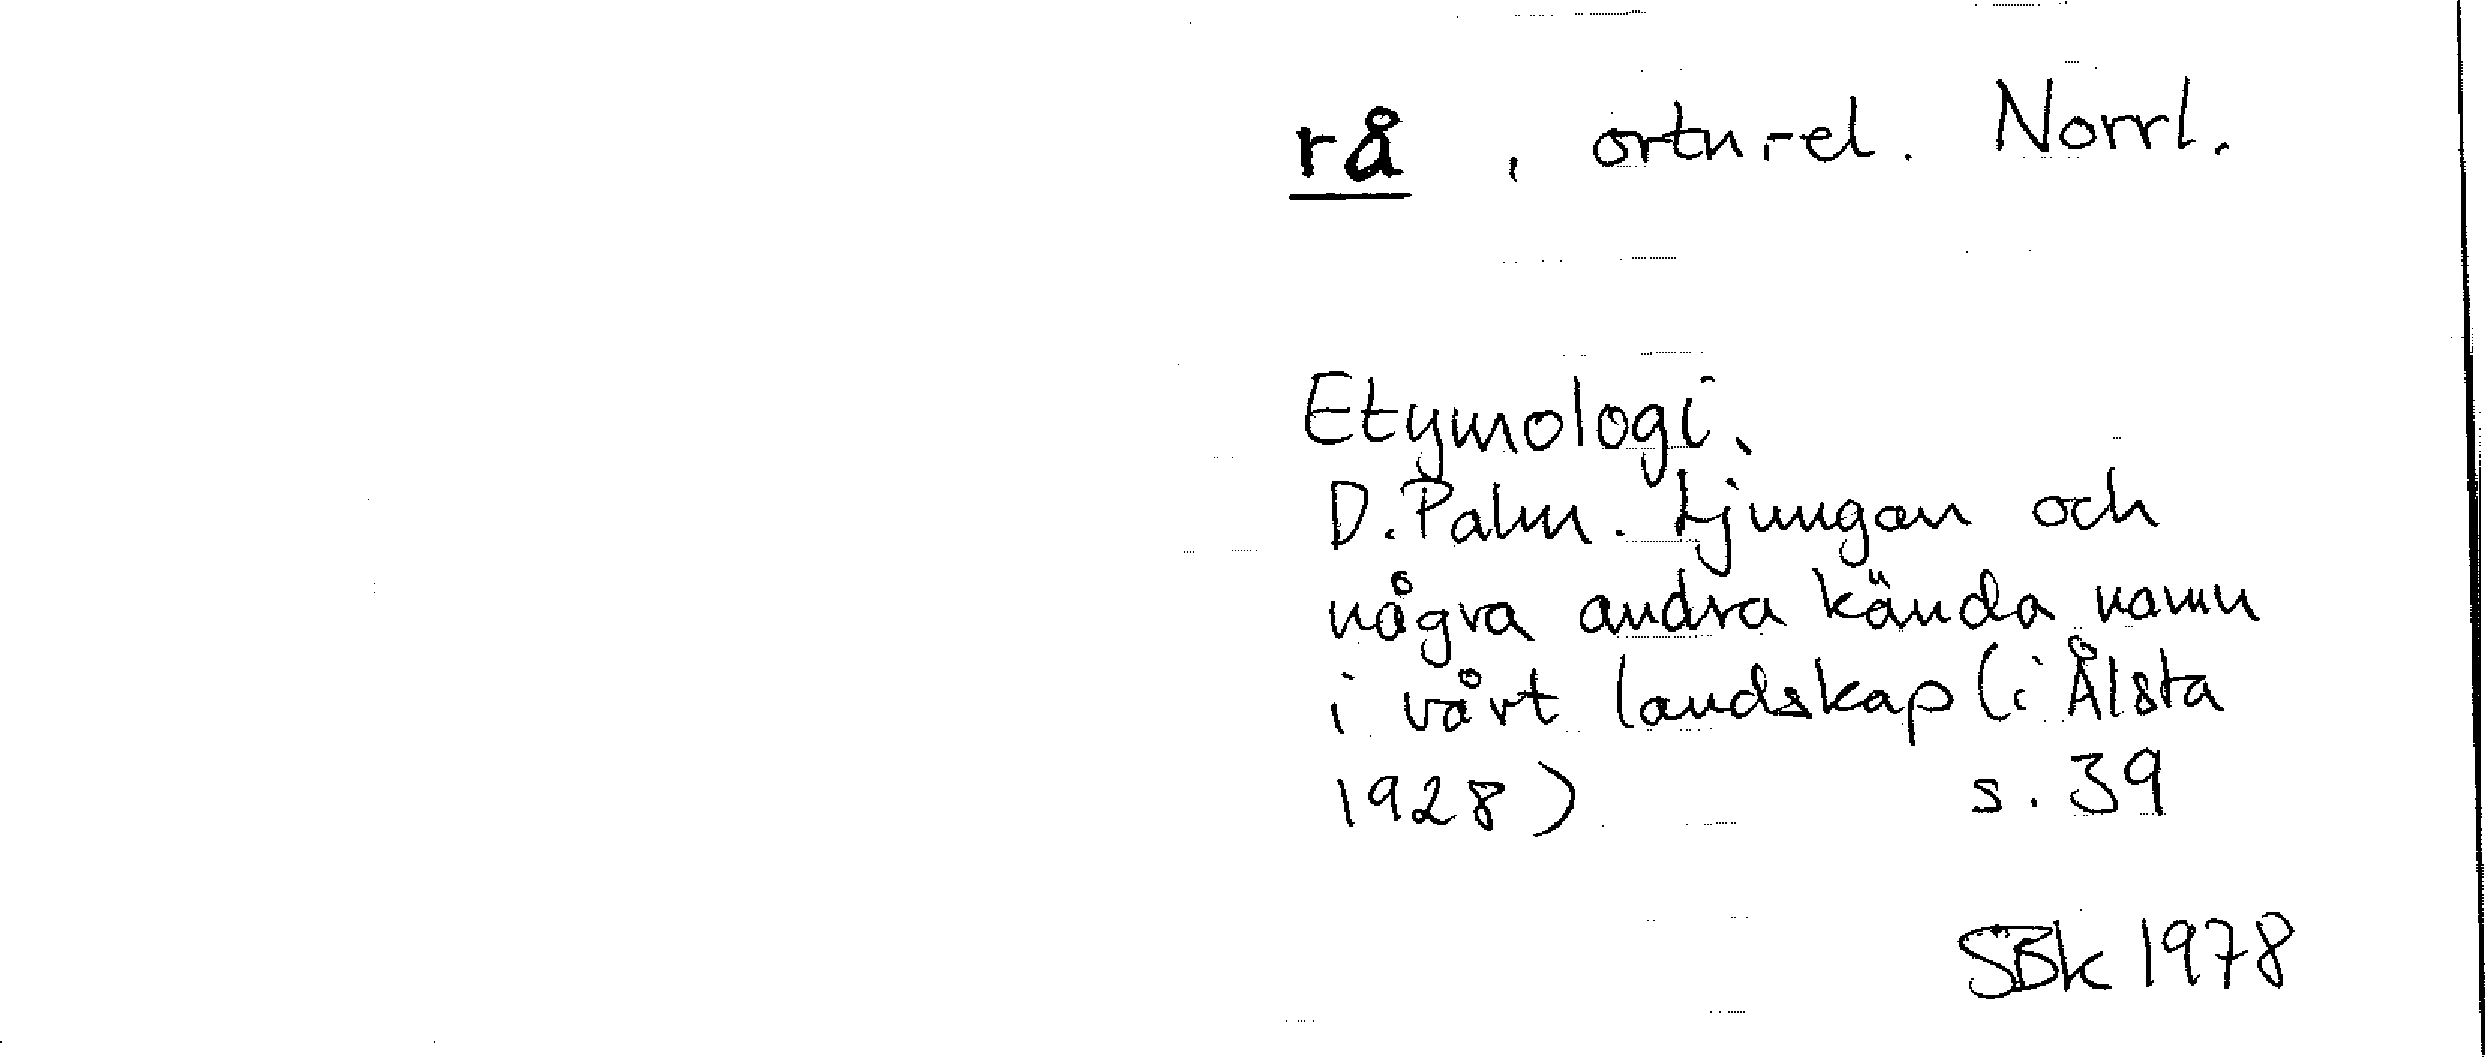 rå , ortn.-el. Norrl.
Etymologi.
D. Palm. Ljungan och
några andra kända namn
i vårt landskap (i Ålsta
1928) s. 39
SBk 1978